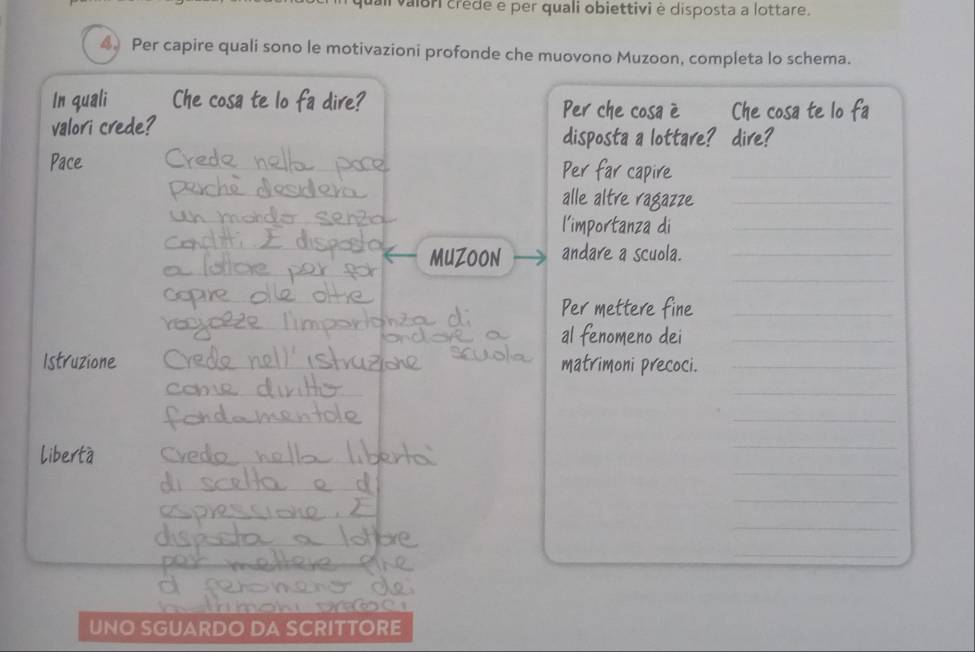 quali valori crede e per quali obiettivi è disposta a lottare.
4. Per capire quali sono le motivazioni profonde che muovono Muzoon, completa lo schema.
In quali
valori crede?
Che cosa te lo fa dire?
Pace
Crede nella pace
perchè desidera
un mondo senza
conditti. È disposta
a lottare per far
capire alle altre
ragazze l'importanza di
andare a
scuola
Istruzione
Crede nell'istruzione
come diritto
fondamentale
Libertà
Crede nella libertà
di scelta e di
espressione. È
disposta a lottare
per mettere fine
al fenomeno dei
matrimoni precoci
MUZOON
Per che cosa è
disposta a lottare?
Che cosa te lo fa
dire?
Per far capire
alle altre ragazze
l'importanza di
andare a scuola.
Per mettere fine
al fenomeno dei
matrimoni precoci.
UNO SGUARDO DA SCRITTORE